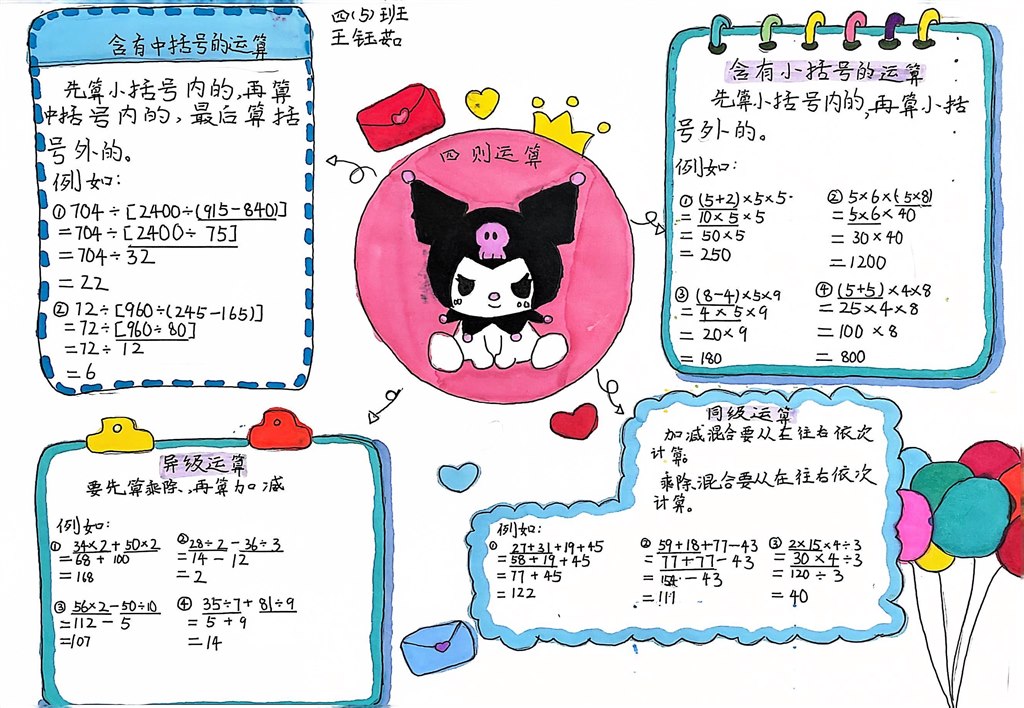 四(5)班
王钰茹
四则运算
含有中括号的运算
先算小括号内的,再算
中括号内的,最后算括
号外的。
例如:
①704÷[2400÷(915-840)]
=704÷[2400÷75]
=704÷32
=22
②72÷[960÷(245-165)]
=72÷[960÷80]
=72÷12
=6
含有小括号的运算
先算小括号内的,再算小括
号外的。
例如:
①(5+2)×5×5
=10×5×5
=50×5
=250
②5×6×(5×8)
=5×6×40
=30×40
=1200
③(8-4)×5×9
=4×5×9
=20×9
=180
④(5+5)×4×8
=25×4×8
=100×8
=800
异级运算
要先算乘除,再算加减
例如:
①34×2+50×2
=68+100
=168
②28÷2-36÷3
=14-12
=2
③56×2-50÷10
=112-5
=107
④35÷7+81÷9
=5+9
=14
同级运算
加减混合要从左往右依次
计算。
乘除混合要从左往右依次
计算。
例如:
①27+31+19+45
=58+19+45
=77+45
=122
②59+18+77-43
=77+77-43
=154-43
=111
③2×15×4÷3
=30×4÷3
=120÷3
=40